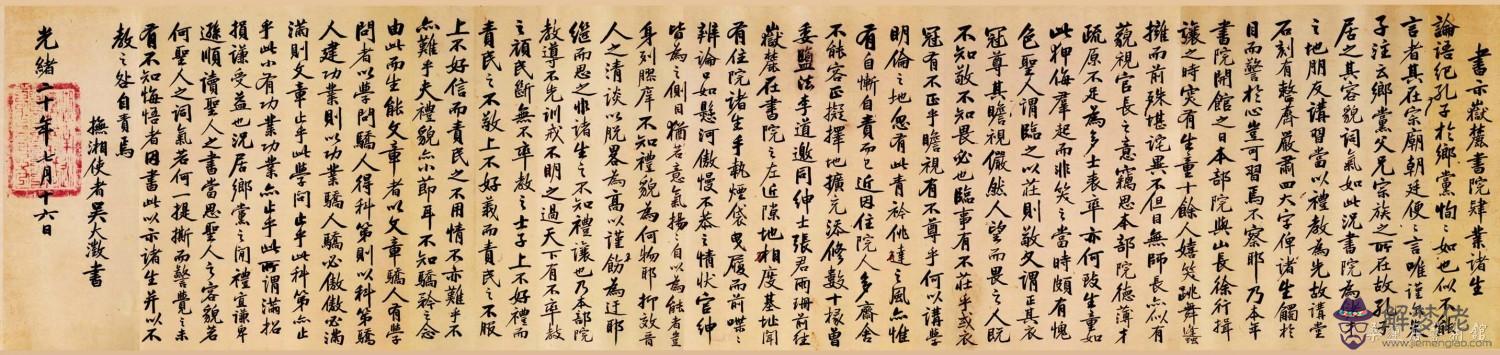 書示嶽麓書院肄業諸生
論語紀孔子於鄉黨恂〻如也似不能
言者其在宗廟朝廷便〻言唯謹
子注云鄉黨父兄宗族之所在故孔
居之其容貌詞氣如此況書院為
之地朋友講習當以禮教為先故講堂
石刻有整齊嚴肅四大字俾諸生觸於
目而警於心豈可習焉不察耶乃本年
書院開館之日本部院與山長徐行揖
讓之時突有生童十餘人嬉笑跳舞
擁而前殊堪詫異不但目無師長亦以有
藐視官長之意竊思本部院德薄才
疏原不足為多士表率亦何致生童如
此狎侮羣起而非笑之當時頗有愧
色聖人謂臨之以莊則敬又謂正其衣
冠尊其瞻視儼然人望而畏之人既
不知敬不知畏必也臨事有不莊乎或衣
冠有不正乎瞻視有不尊乎何以講學
明倫之地忽有此青衿佻達之風亦惟
有自慚自責而已近因住院人多齋舍
不能容正擬擇地擴充添修數十椽曾
委鹽法李道邀同紳士張君雨珊前往
嶽麓在書院之左近隙地相度基址聞
有住院諸生手執煙袋曳履而前喋〻
辨論口如懸河傲慢不恭之情狀官紳
皆為之側目猶若意氣揚〻自以為能者豈
身列膠庠不知禮貌為何物耶抑效晉
人之清談以脫畧為高以謹飭為迂耶
繼而思之非諸生之不知禮讓也乃本部院
教導不先訓戒不明之過天下有不率教
之頑民斷無不率教之士子上不好禮而
責民之不敬上不好義而責民之不服
上不好信而責民之不用情不亦難乎不
亦難乎夫禮貌亦小節耳不知驕矜之念
由此而生能文章者以文章驕人有學
問者以學問驕人得科第則以科第驕
人建功業則以功業驕人驕必傲傲必滿
滿則文章止乎此學問止乎此科第亦止
乎此小有功業功業亦止乎此所謂滿招
損謙受益也況居鄉黨之間禮宜謙卑
遜順讀聖人之書當思聖人之容貌若
何聖人之詞氣若何一提撕而警覺之未
有不知悔悟者因書此以示諸生并以不
教之咎自責焉
撫湘使者吳大澂書
光緒二十年七月十六日
解梦佬
www.jiemenglao.com